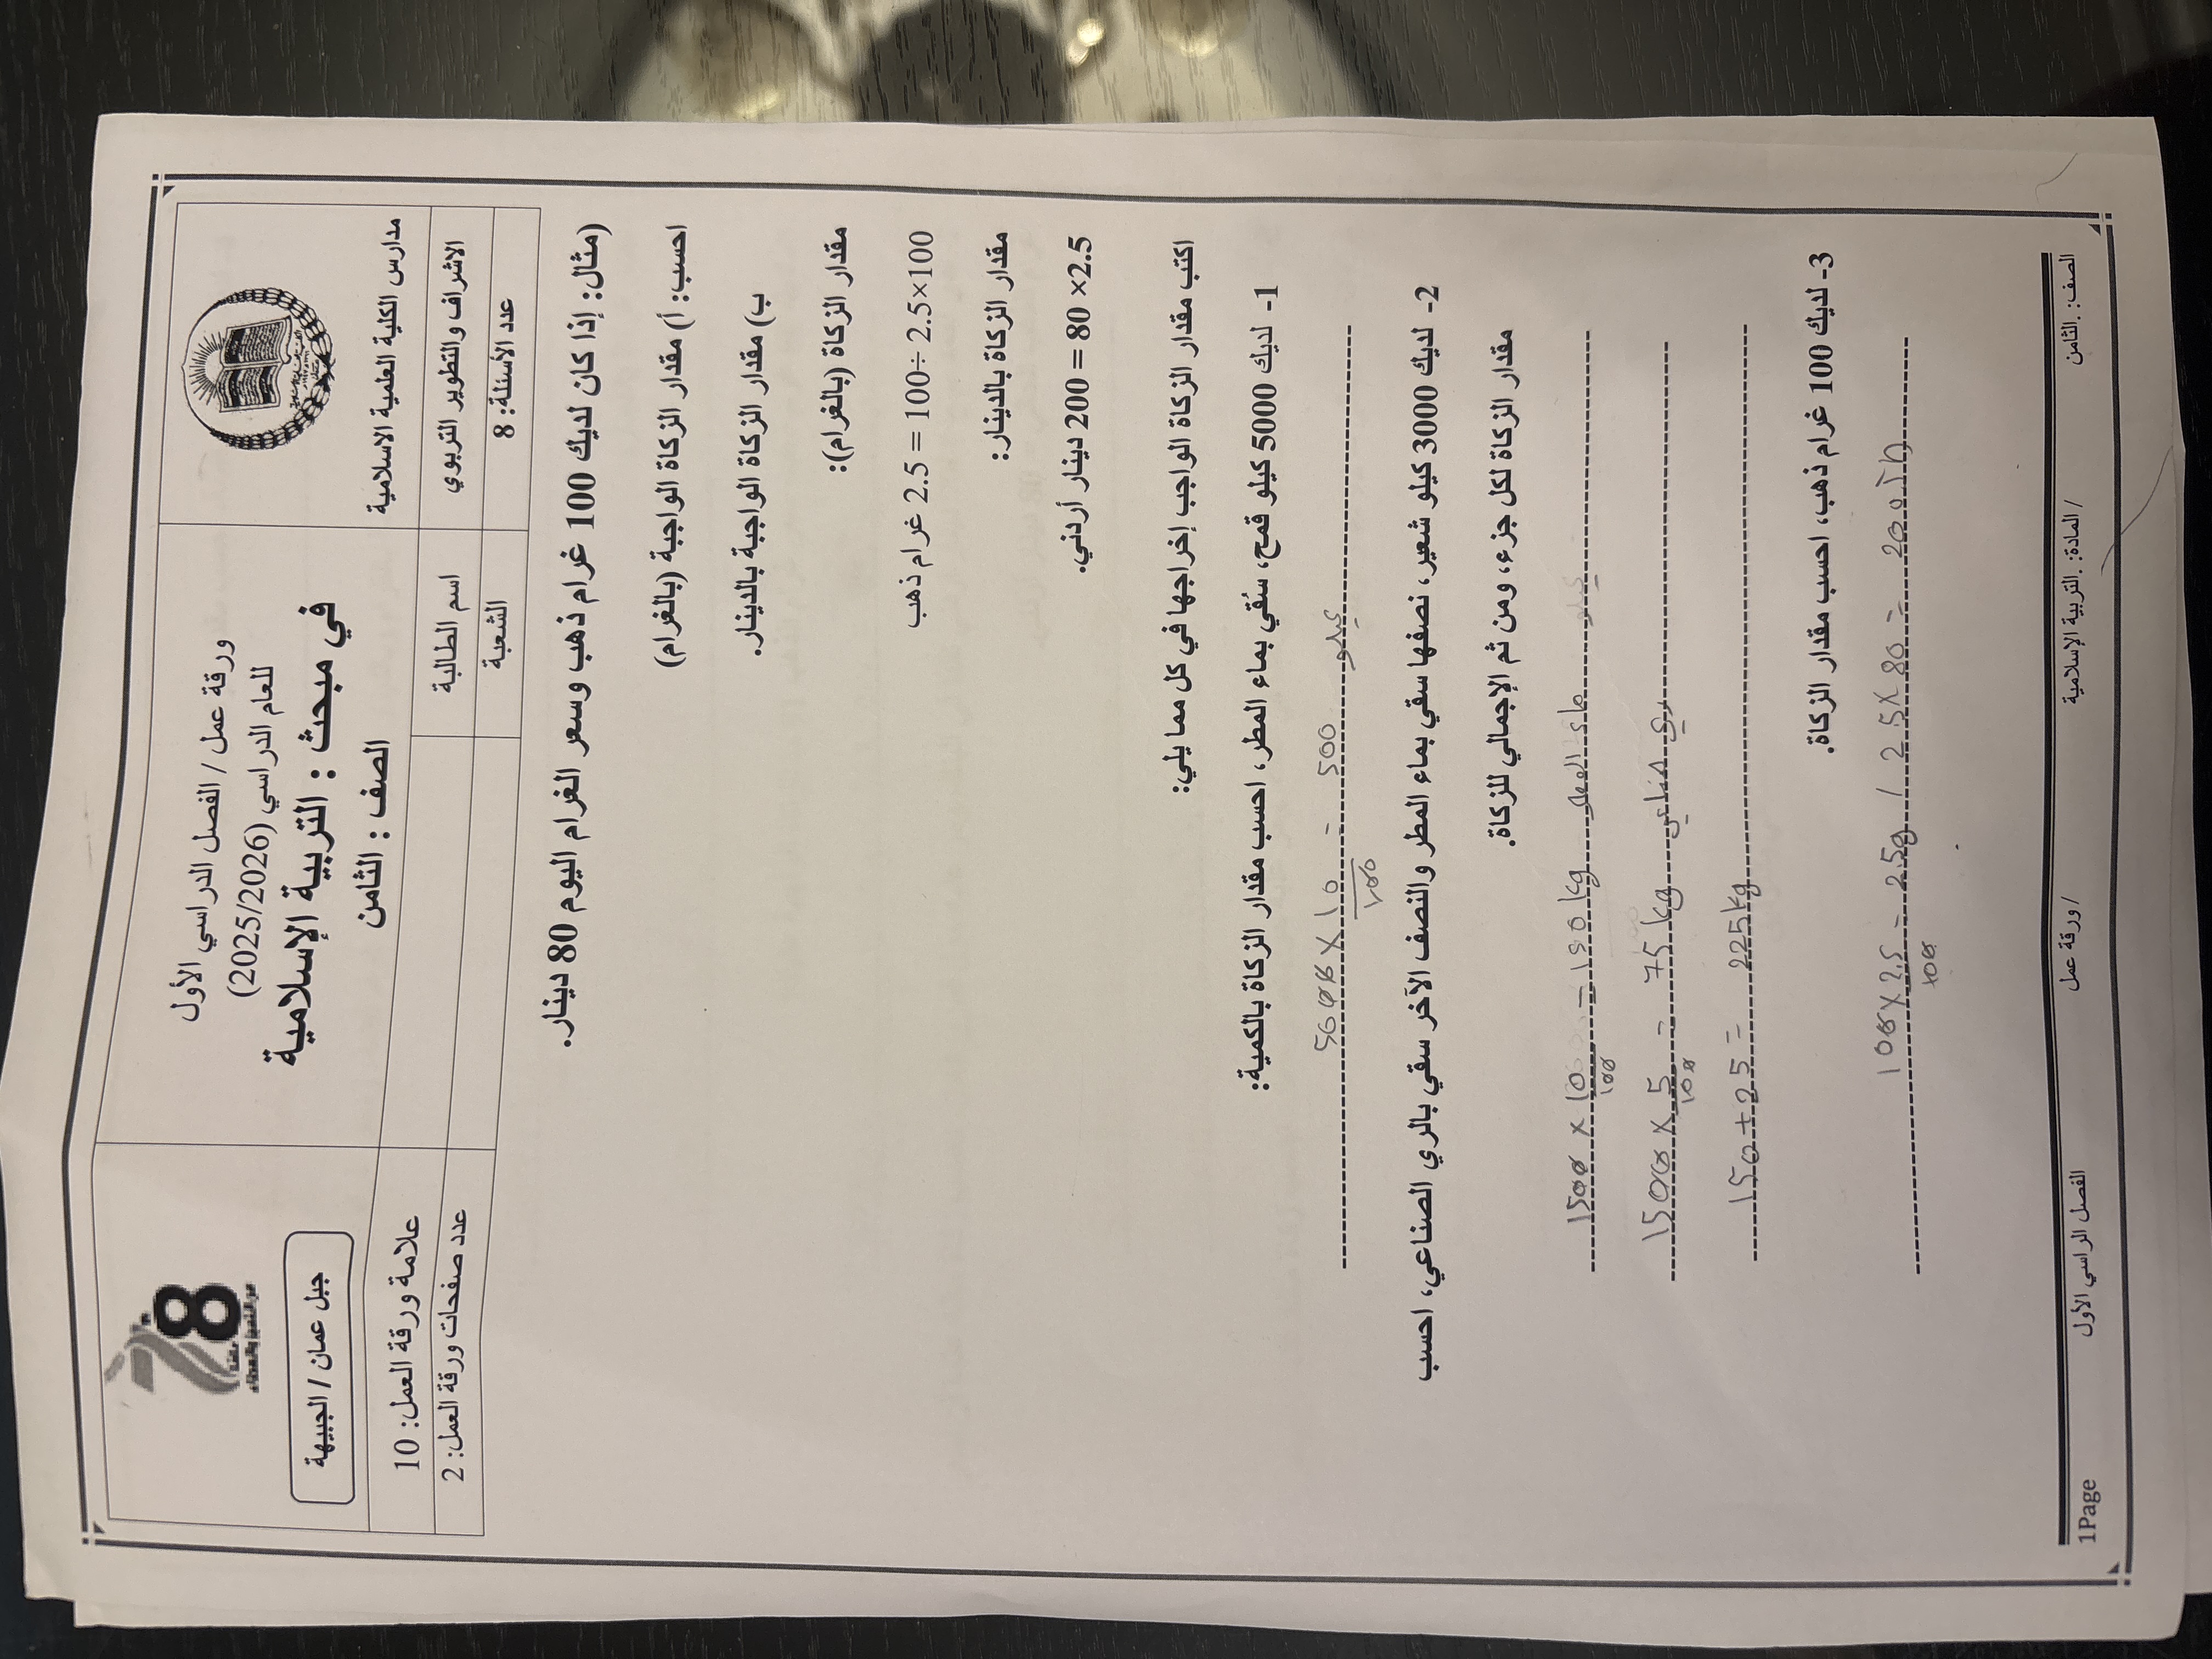 مدارس الكلية العلمية الاسلامية
ورقة عمل / الفصل الدراسي الأول
للعام الدراسي (2025/2026)
في مبحث : التربية الإسلامية
الصف : الثامن
جبل عمان / الجبيهة
الاشراف والتطوير التربوي
اسم الطالبة
علامة ورقة العمل: 10
عدد الأسئلة: 8
الشعبة
عدد صفحات ورقة العمل: 2
(مثال: إذا كان لديك 100 غرام ذهب وسعر الغرام اليوم 80 دينار.
احسب: أ) مقدار الزكاة الواجبة (بالغرام)
ب) مقدار الزكاة الواجبة بالدينار.
مقدار الزكاة (بالغرام):
2.5×100 ÷100 = 2.5 غرام ذهب
مقدار الزكاة بالدينار:
2.5× 80 = 200 دينار أردني.
اكتب مقدار الزكاة الواجب إخراجها في كل مما يلي:
1- لديك 5000 كيلو قمح، سُقي بماء المطر، احسب مقدار الزكاة بالكمية:
5000 × 10/100 = 500 كيلو
2- لديك 3000 كيلو شعير، نصفها سقي بماء المطر والنصف الآخر سقي بالري الصناعي، احسب
مقدار الزكاة لكل جزء، ومن ثم الإجمالي للزكاة.
1500 × 10/100 = 150 kg ماء المطر
1500 × 5/100 = 75 kg ري صناعي
150 + 25 = 225kg
3- لديك 100 غرام ذهب، احسب مقدار الزكاة.
100 × 2.5/100 = 2.5g / 2.5 × 80 = 200
الصف: .الثامن / المادة: .التربية الإسلامية / ورقة عمل الفصل الراسي الأول 1Page